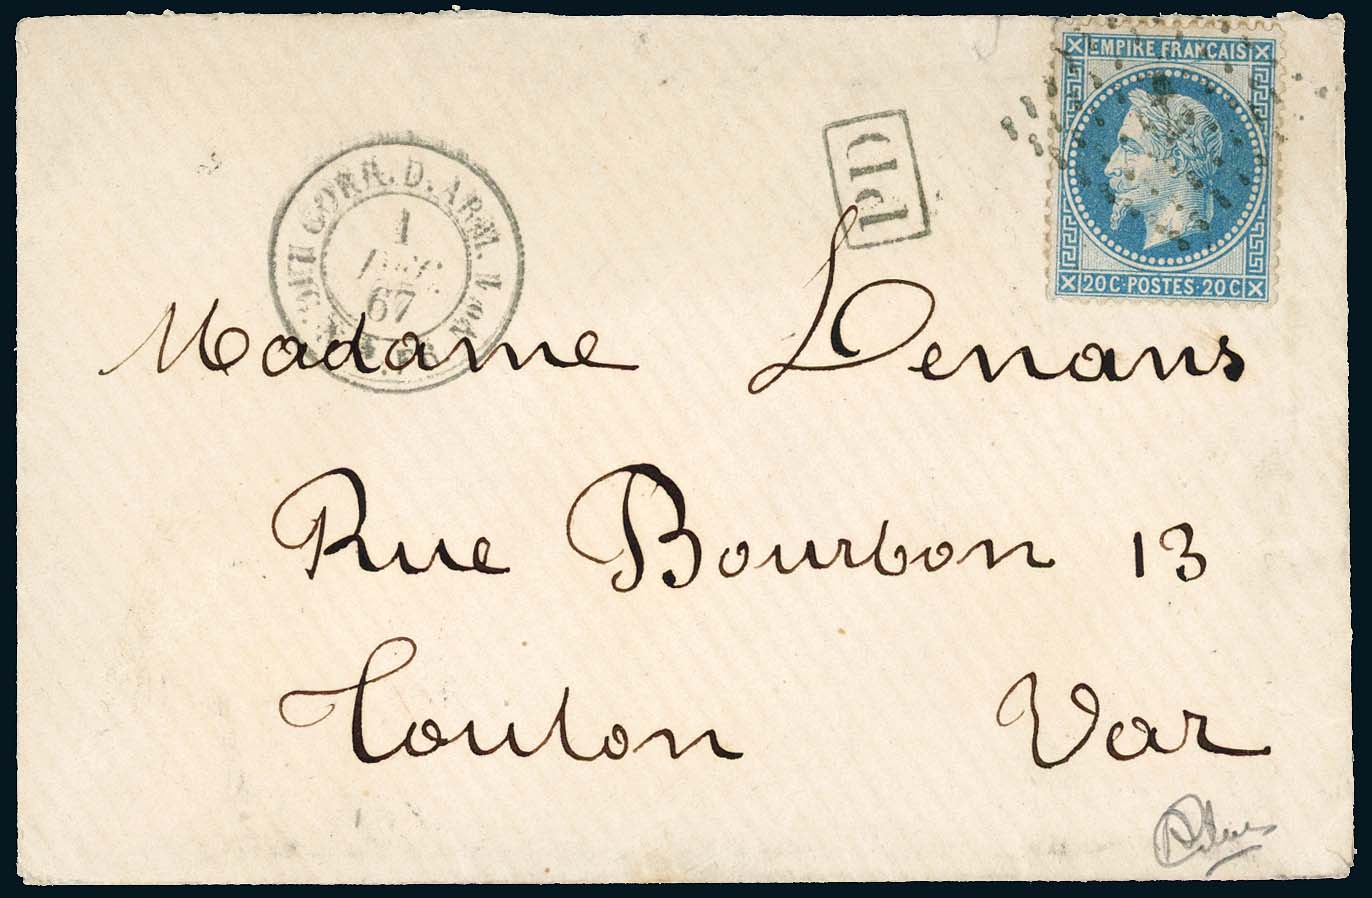 EMPIRE FRANÇAIS
20 C · POSTES · 20 C
PD
CORR. D. ARM.
1
DEC
67
Madame Lenans
Rue Bourbon 13
Toulon Var